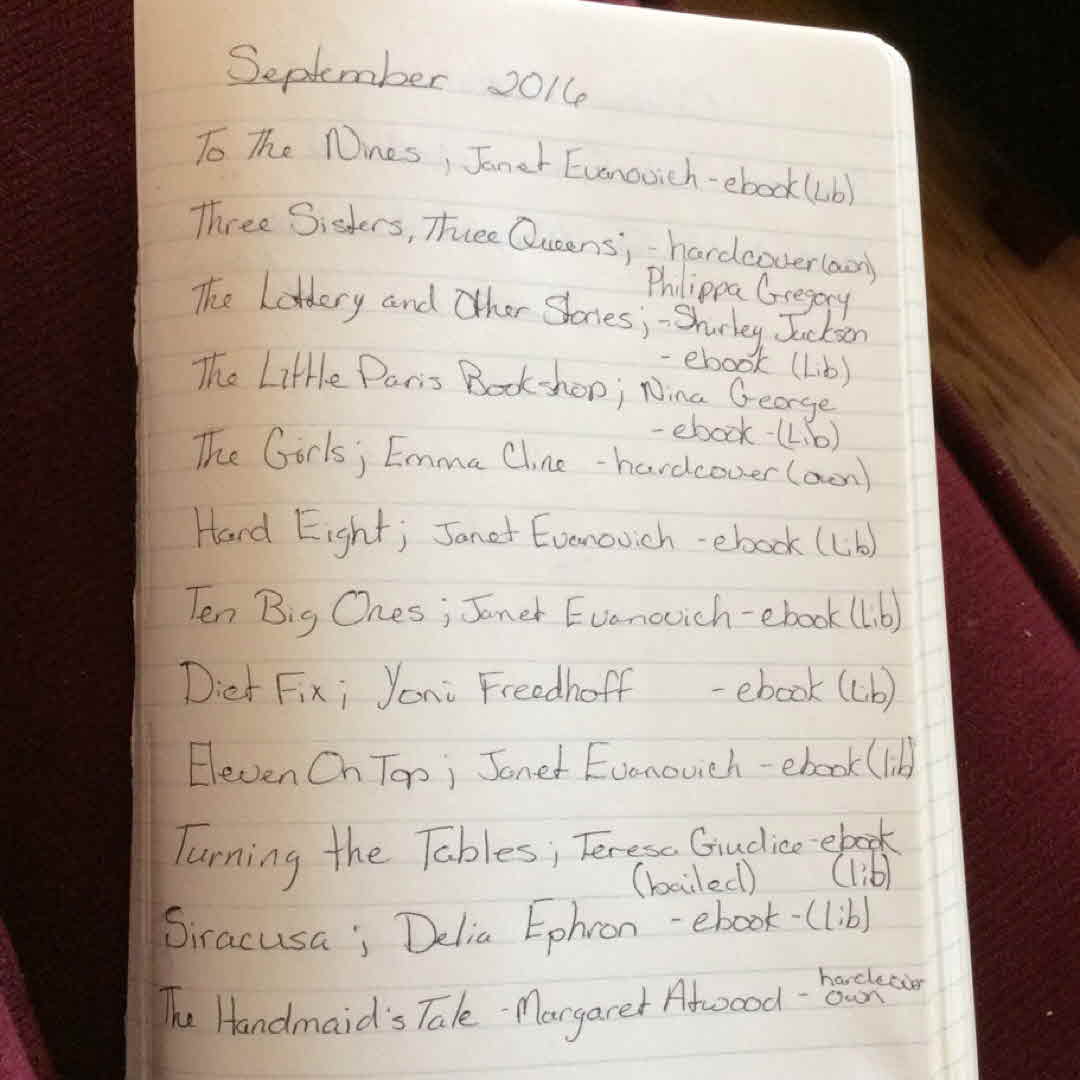 September 2016
To The Nines; Janet Evanovich - ebook (Lib)
Three Sisters, Three Queens; - hardcover (own)
Philippa Gregory
The Lottery and Other Stories; - Shirley Jackson
- ebook (Lib)
The Little Paris Bookshop; Nina George
- ebook - (Lib)
The Girls; Emma Cline - hardcover (own)
Hard Eight; Janet Evanovich - ebook (Lib)
Ten Big Ones; Janet Evanovich - ebook (Lib)
Diet Fix; Yoni Freedhoff - ebook (Lib)
Eleven On Top; Janet Evanovich - ebook (lib)
Turning the Tables; Teresa Giudice - ebook
(bailed) (lib)
Siracusa; Delia Ephron - ebook - (Lib)
The Handmaid's Tale - Margaret Atwood - hardcover
own